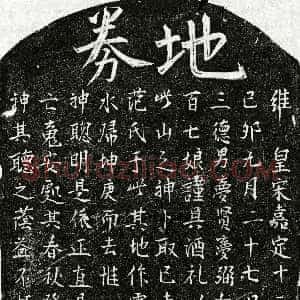 地券
維皇宋嘉定十
己卯九月二十七
三德男夢賢夢弼
百七娘謹具酒礼
此山之神卜取已
范氏于此其地作
水歸坤庚而去惟
神聰明是依正直是
亡䰟安處其春秋
神其聽之蔭益不